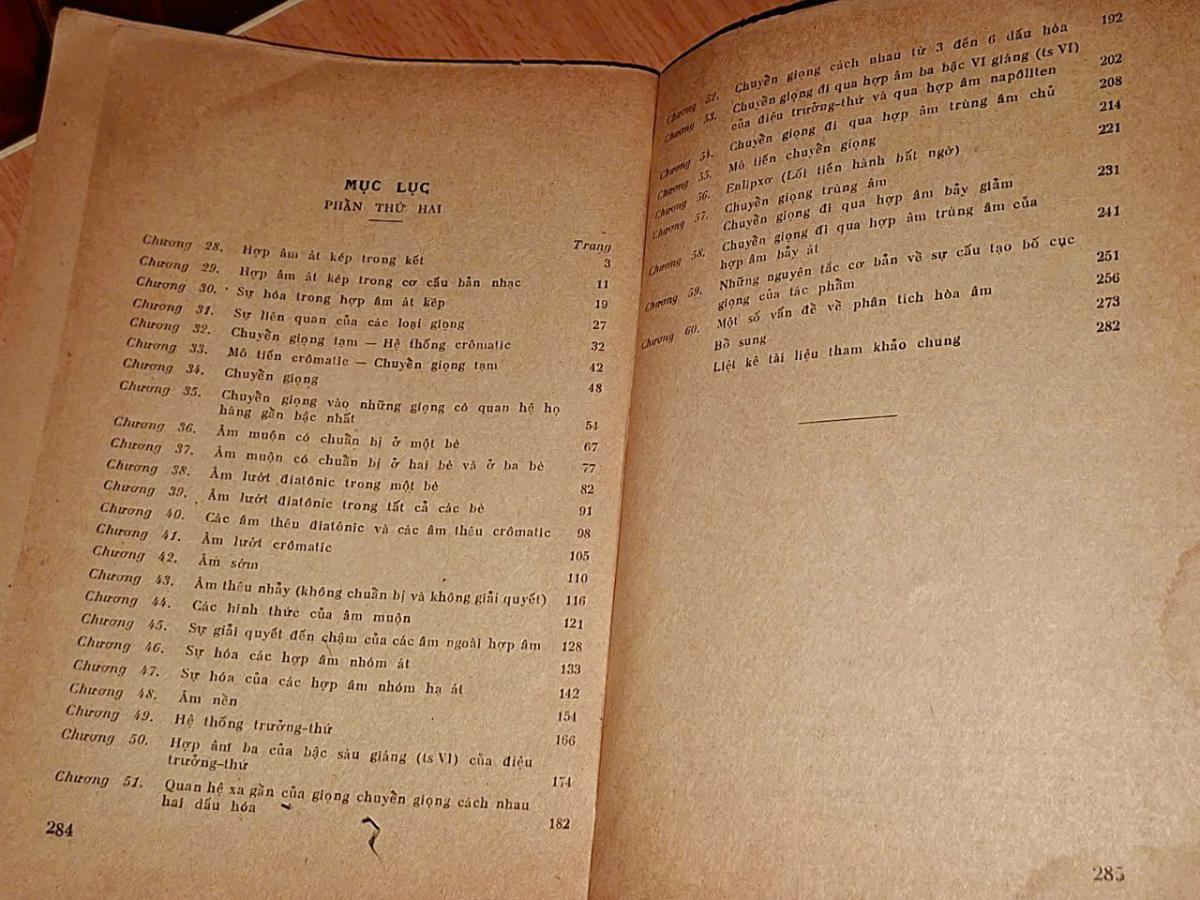 MỤC LỤC
PHẦN THỨ HAI
Trang
Chương 28. Hợp âm át kép trong kết 3
Chương 29. Hợp âm át kép trong cơ cấu bản nhạc 11
Chương 30. Sự hóa trong hợp âm át kép 19
Chương 31. Sự liên quan của các loại giọng 27
Chương 32. Chuyển giọng tạm — Hệ thống crômatic 32
Chương 33. Mô tiến crômatic — Chuyển giọng tạm 42
Chương 34. Chuyển giọng 48
Chương 35. Chuyển giọng vào những giọng có quan hệ họ
hàng gần bậc nhất 54
Chương 36. Âm muộn có chuẩn bị ở một bè 67
Chương 37. Âm muộn có chuẩn bị ở hai bè và ở ba bè 77
Chương 38. Âm lướt điatônic trong một bè 82
Chương 39. Âm lướt điatônic trong tất cả các bè 91
Chương 40. Các âm thêu điatônic và các âm thêu crômatic 98
Chương 41. Âm lướt crômatic 105
Chương 42. Âm sớm 110
Chương 43. Âm thêu nhảy (không chuẩn bị và không giải quyết) 116
Chương 44. Các hình thức của âm muộn 121
Chương 45. Sự giải quyết đến chậm của các âm ngoài hợp âm 128
Chương 46. Sự hóa các hợp âm nhóm át 133
Chương 47. Sự hóa của các hợp âm nhóm hạ át 142
Chương 48. Âm nền 154
Chương 49. Hệ thống trưởng-thứ 166
Chương 50. Hợp âm ba của bậc sáu giáng (ts VI) của điệu
trưởng-thứ 174
Chương 51. Quan hệ xa gần của giọng chuyển giọng cách nhau
hai dấu hóa 182
284
Chương 52. Chuyển giọng cách nhau từ 3 đến 6 dấu hóa 192
Chương 53. Chuyển giọng đi qua hợp âm ba bậc VI giáng (ts VI)
của điệu trưởng-thứ và qua hợp âm napôliten 202
Chương 54. Chuyển giọng đi qua hợp âm trùng âm chủ 208
Chương 55. Mô tiến chuyển giọng 214
Chương 56. Enlipxơ (Lối tiến hành bất ngờ) 221
Chương 57. Chuyển giọng trùng âm
Chuyển giọng đi qua hợp âm bảy giảm 231
Chương 58. Chuyển giọng đi qua hợp âm trùng âm của
hợp âm bảy át 241
Chương 59. Những nguyên tắc cơ bản về sự cấu tạo bố cục
giọng của tác phẩm 251
Chương 60. Một số vấn đề về phân tích hòa âm 256
Bổ sung 273
Liệt kê tài liệu tham khảo chung 282
285